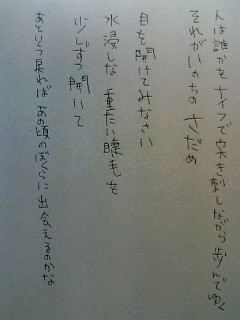 人は誰かをナイフで突き刺しながら歩んでゆく
それがいのちのさだめ
目を開けてみなさい
水浸しな重たい睫毛を
少しずつ開いて
あといくつ戻れば あの頃のぼくらに出会えるのかな